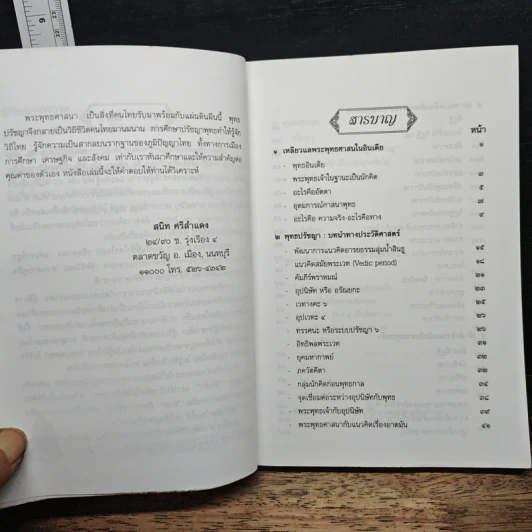 6
พระพุทธศาสนา เป็นสิ่งที่คนไทยรับมาพร้อมกับแผ่นดินผืนนี้ พุทธ
ปรัชญาจึงกลายเป็นวิถีชีวิตคนไทยมานมนาน การศึกษาปรัชญาพุทธทำให้รู้จัก
วิถีไทย รู้จักความเป็นสากลบนรากฐานของภูมิปัญญาไทย ทั้งทางการเมือง
การศึกษา เศรษฐกิจ และสังคม เท่ากับเราหันมาศึกษาและให้ความสำคัญต่อ
คุณค่าของตัวเอง หนังสือเล่มนี้จะให้คำตอบให้ท่านได้วิเคราะห์
สนิท ศรีสำแดง
๒๔/๙๐ ซ. รุ่งเรือง ๔
ตลาดขวัญ อ. เมือง, นนทบุรี
๑๑๐๐๐ โทร. ๕๒๖-๔๓๔๒
สารบาญ
หน้า
๑ เหลียวแลพระพุทธศาสนในอินเดีย ๑
- พุทธอินเดีย
- พระพุทธเจ้าในฐานะเป็นนักคิด ๓
- อะไรคืออัตตา ๕
- อุดมการณ์ศาสนาพุทธ ๗
- อะไรคือ ความจริง-อะไรคือทาง ๙
๒ พุทธปรัชญา : บทนำทางประวัติศาสตร์
- พัฒนาการแนวคิดอารยธรรมลุ่มน้ำสินธู ๑๕
- แนวคิดสมัยพระเวท (Vedic period) ๑๘
- คัมภีร์พราหมณ์ ๒๑
- อุปนิษัท หรือ อรัณยกะ ๒๓
- เวทางคะ ๖ ๒๕
- อุปเวทะ ๔ ๒๖
- ทรรศนะ หรือระบบปรัชญา ๖ ๒๖
- อิทธิพลพระเวท ๓๑
- ยุคมหากาพย์ ๓๒
- ภควัตคีตา ๓๒
- กลุ่มนักคิดก่อนพุทธกาล ๓๔
- จุดเชื่อมต่อระหว่างอุปนิษัทกับพุทธ ๓๘
- พระพุทธเจ้ากับอุปนิษัท ๓๙
- พระพุทธศาสนากับแนวคิดเรื่องอาตมัน ๔๑